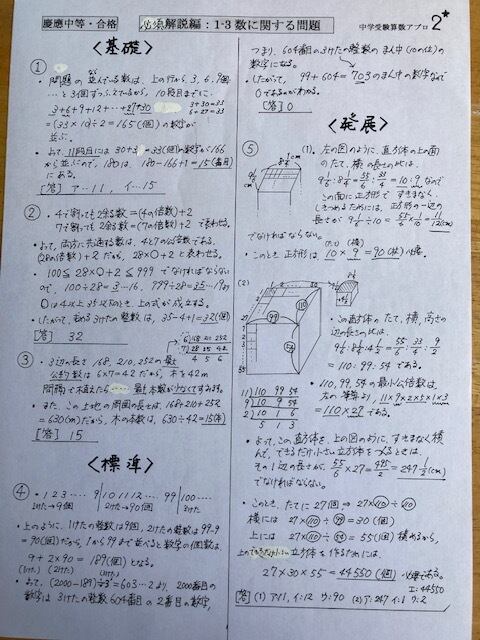 慶應中等・合格
必須解説編：1-3 数に関する問題
中学受験算数アプロ 2*
＜基礎＞
①
・問題の並んでいる数は、上の行から、3, 6, 9個
… と3個ずつふえてるから、10段目までに、
3+6+9+12+…+27+30
3+30=33
6+27=33
=(33×10)÷2=165(個)の数字が
並ぶ。
・よって、11段目には30+3=33(個)の数字が166
から並ぶので、180は、180-166+1=15(番目)
にある。
[答] ア…11, イ…15
②
・4で割っても2余る数=(4の倍数)+2
7で割っても2余る数=(7の倍数)+2 で表わせる。
・よって、両方に共通する数は、4と7の公倍数である、
(28の倍数)+2 だから、28×○+2 と表わせる。
・100≦28×○+2≦999 でなければならない
ので、100÷28=3…16, 999÷28=35…19より
○は4以上35以下のとき、上の式が成立する。
・したがって、求める3けたの整数は、35-4+1=32(個)
[答] 32
6)168 210 252
7)28 35 42
4 5 6
③
・3辺の長さ 168, 210, 252の最大
公約数は 6×7=42 だから、木を42m
間隔で植えたら 最も本数が少なくてすみます。
・また、この土地の周囲の長さは、168+210+252
=630(m)だから、木の本数は、630÷42=15(本)
[答] 15
＜標準＞
④
・1 2 3 … 9 10 11 12 … 99 100 …
1けた→9個 2けた→90個 3けた
・上のように、1けたの整数は9個、2けたの整数は99-9
=90(個)だから、1から99まで並べると数字の個数は、
9+2×90=189(個)となる。
(1けた) (2けた)
・よって、(2000-189)÷3=603…2より、2000番目の
数字は 3けたの整数604番目の2番目の数字、
つまり、604番目の3けたの整数のまん中(10の位)の
数字になる。
・したがって、99+604=703のまん中の数字なので
0であるのがわかる。
[答] 0
＜発展＞
⑤
(1)・左の図のように、直方体の上の面
のたて、横の長さの比は、
9 1/6:8 1/4=55/6:33/4=10:9なので
この面に正方形で すきまなく
しきつめるためには、正方形の一辺の
長さが 9 1/6÷10=55/6×1/10=11/12(cm)
でなければならない。
(たて) (横)
・このとき 正方形は、10×9=90(枚)必要。
(2)
・この直方体の たて、横、高さの
辺の長さの比は、
9 1/6:8 1/4:4 1/2=55/6:33/4:9/2
=110:99:54 である。
・110, 99, 54の最小公倍数は、
左の筆算より、11×9×2×5×1×3
=110×27 である。
11)110 99 54
9)10 9 54
2)10 1 6
5 1 3
・よって、この直方体を 上の図のように、すきまなく積
んで、できるだけ小さい立方体をつくるときは、
その1辺の長さが、55/6×27=495/2=247 1/2(cm)
でなければならない。
・このとき、たてに27個⇒27×110÷110
横には 27×110÷99=30(個)
上には 27×110÷54=55(個)積めるから、
上のできるだけ小さい立方体を作るためには、
27×30×55=44550(個)必要である。
[答] (1) ア:11, イ:12 ウ:90 (2) ア:247 イ:1 ウ:2
エ:44550